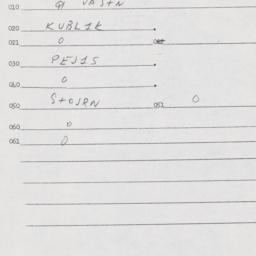 010
020 KUBLIK
021 0
030 PEJIS
040 0
050 STOJAN 051 0
060 0
061 0